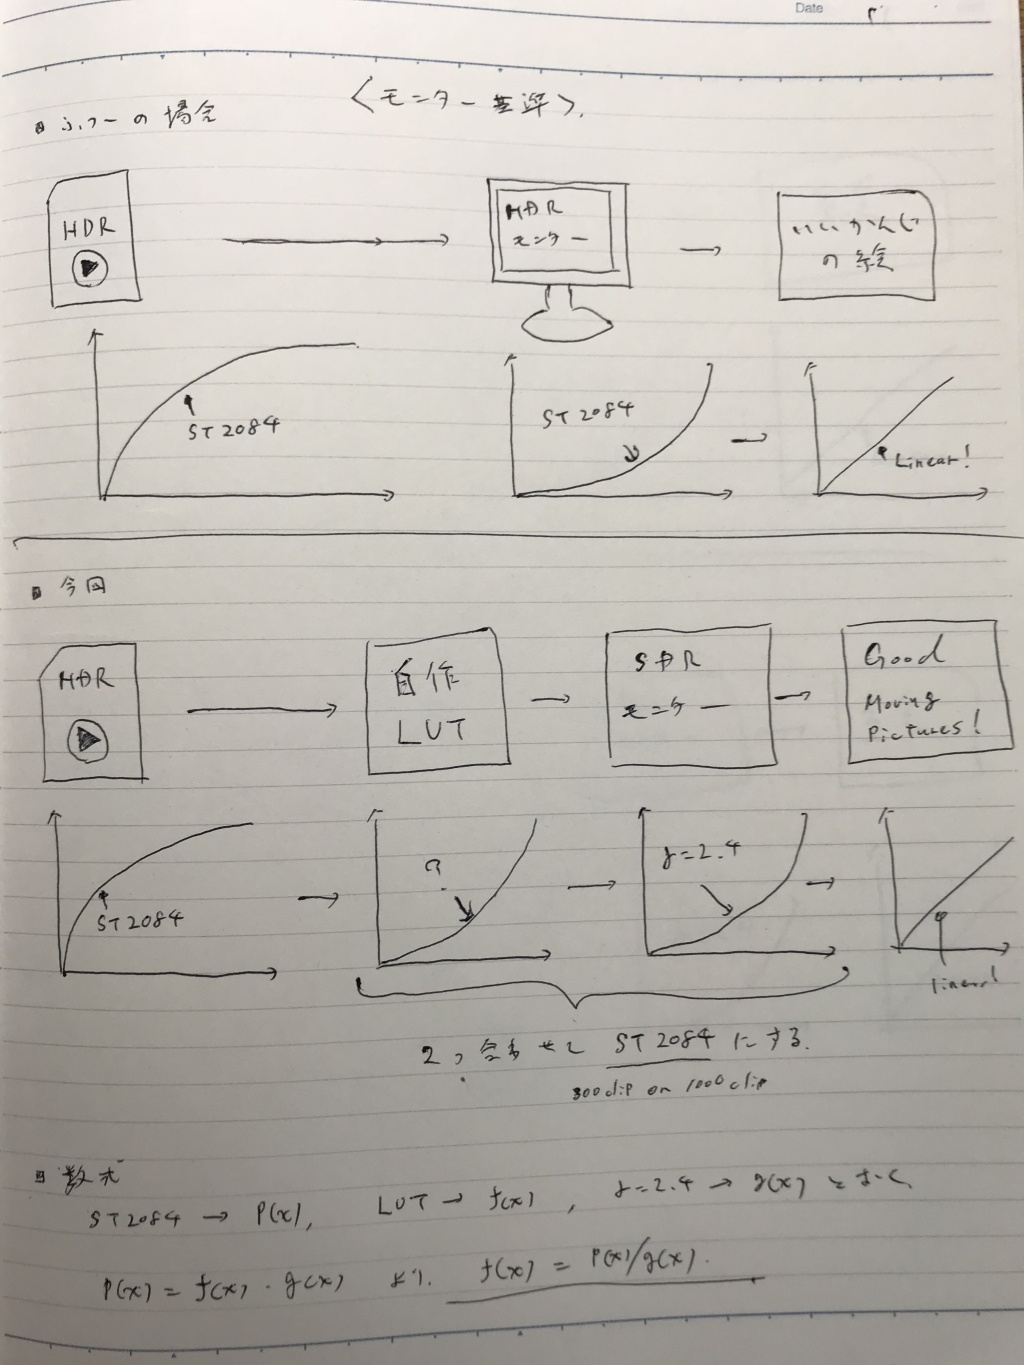 Date
<モニター基準>
ふつーの場合
HDR
HDR
モニター
いいかんじ
の絵
ST 2084
ST 2084
Linear!
今回
HDR
自作
LUT
SDR
モニター
Good
Moving
Pictures!
ST 2084
?
γ=2.4
linear!
2つ合わせて ST 2084 にする.
800 clip or 1000 clip
数式
ST 2084 → P(x), LUT → f(x), γ=2.4 → g(x) とおく.
P(x) = f(x)・g(x) より. f(x) = P(x)/g(x).